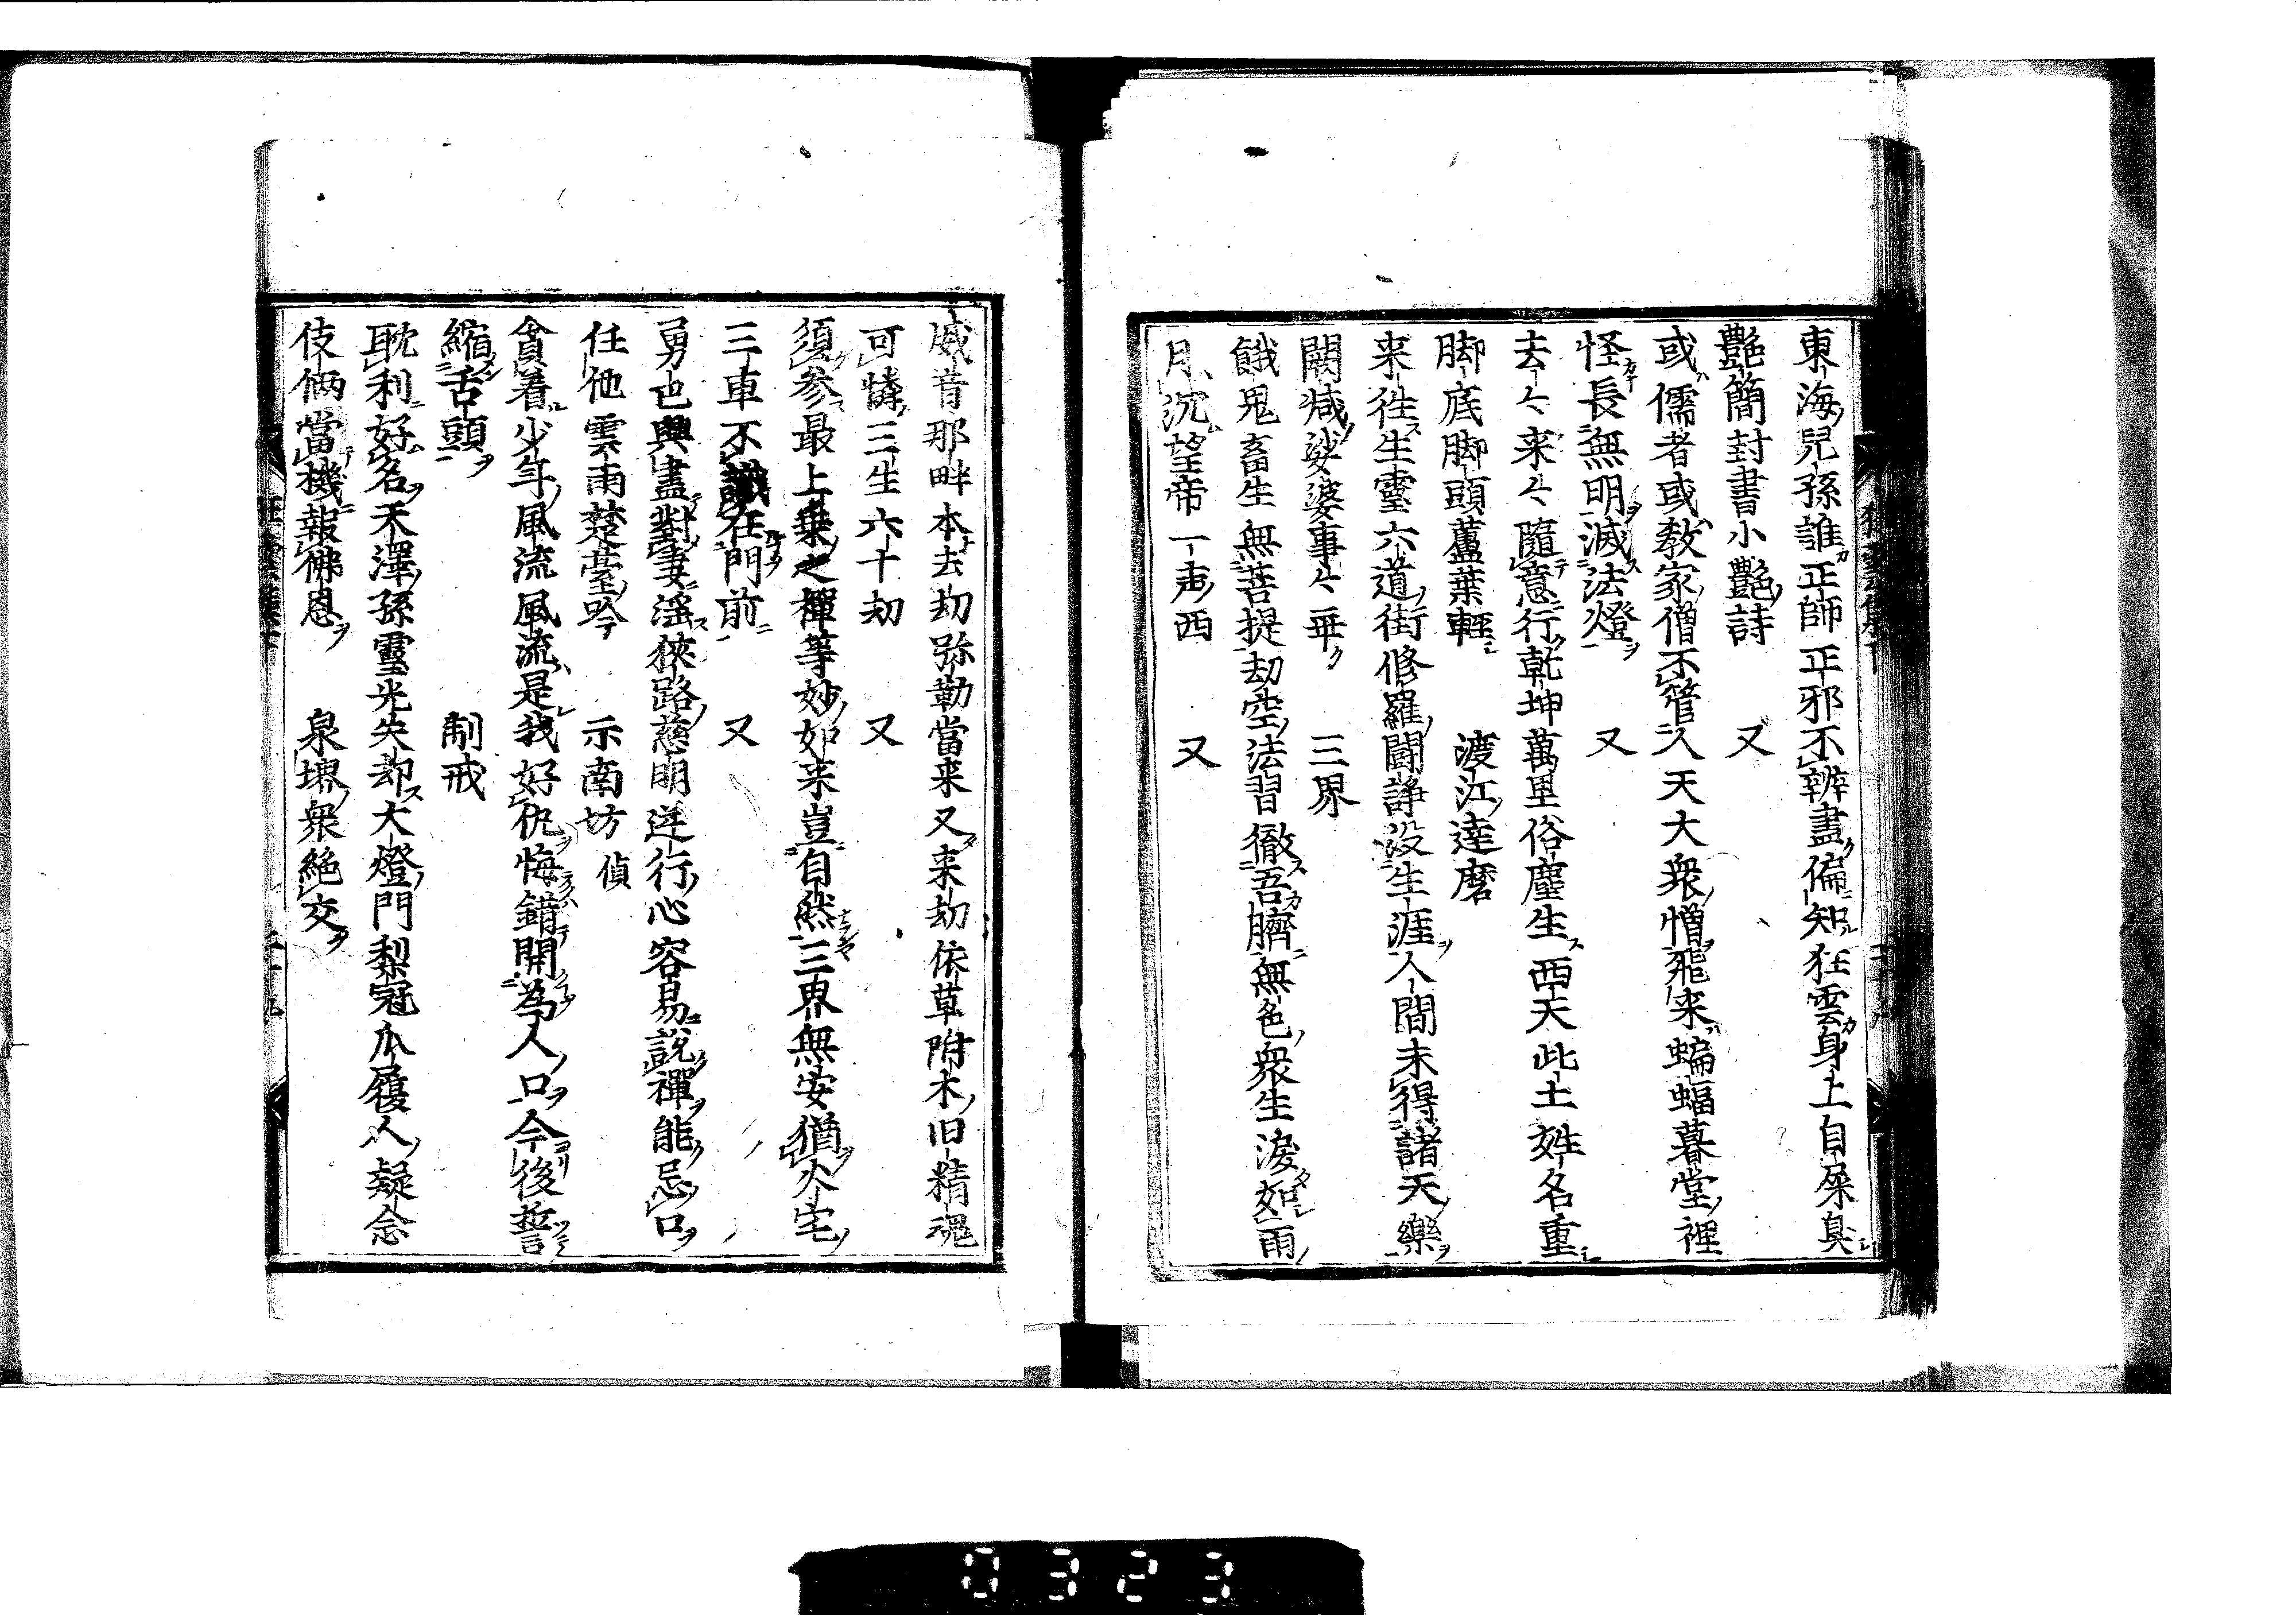 東海兒孫誰正師正邪不辨盡偏知狂雲身上自屎臭
艶簡封書小艶詩 又
或儒者或敎家僧不管人天大衆憎飛来蝙蝠暮堂裡
怪長無明滅法燈 又
去々来々隨意行乾坤萬里俗塵生西天此土姓名重
脚底脚頭蘆葉輕 渡江達磨
来往生霊六道街修羅鬪諍没生涯人間未得諸天樂
闕減娑婆事々乖 三界
餓鬼畜生無菩提劫空法習徹吾臍無色衆生淚如雨
月沉望帝一声西 又
威音那畔本去劫弥勒當来又来劫依草附木旧精魂
可憐三生六十劫 又
須参最上乗之禪等妙如来豈自然三界無安猶火宅
三車不識在門前 又
勇巴興盡對妻淫狹路慈明逆行心容易說禪能忌口
任他雲雨楚臺吟 示南坊偵
貪着少年風流風流是我好仇悔錯開為人口今後誓
縮舌頭 制戒
耽利好名天澤孫靈光失却大燈門梨冠瓜履人疑念
伎倆當機報佛恩 泉堺衆絶交
0323